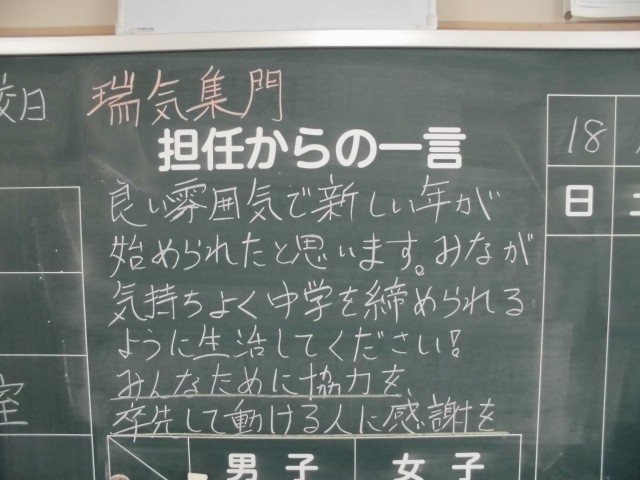 校日
瑞気集門
担任からの一言
良い雰囲気で新しい年が
始められたと思います。みなが
気持ちよく中学を締められる
ように生活してください!
みんなために協力を、
率先して動ける人に感謝を
18
日
土
室
男子
女子